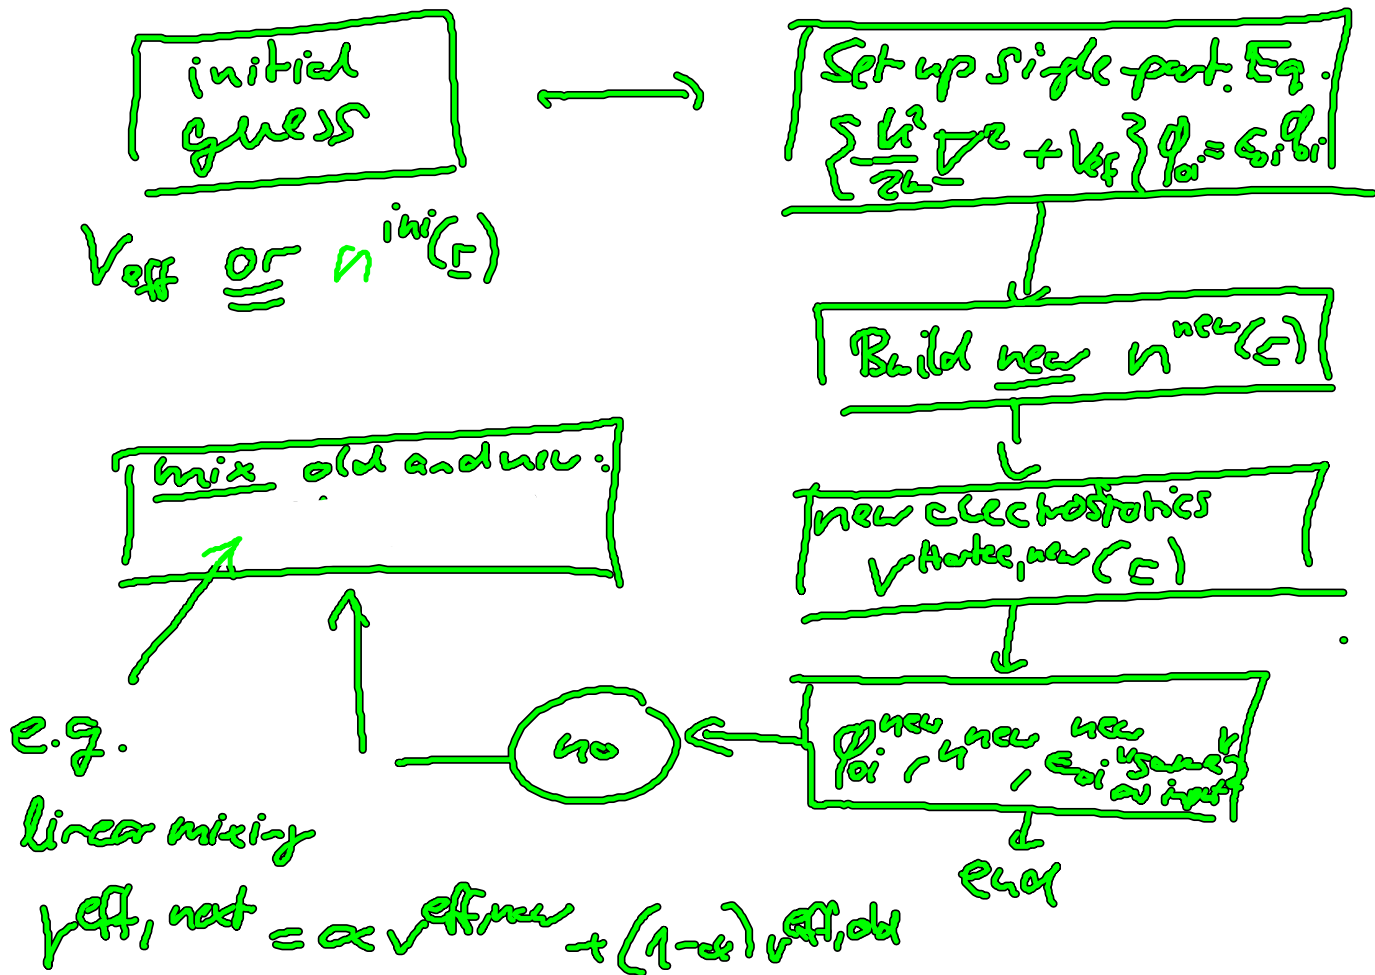 initial
guess
V_eff or n^ini(r)
Set up single-part. Eq.
{ħ²/2m ∇² + V_eff} φ_αi = ε_αi φ_αi
Build new n^new(r)
new electrostatics
V^Hartee,new(r)
φ_αi^new, n^new, ε_αi^new "same"
as input?
end
no
mix old and new.
e.g.
linear mixing
V^eff,next = α V^eff,new + (1-α) V^eff,old